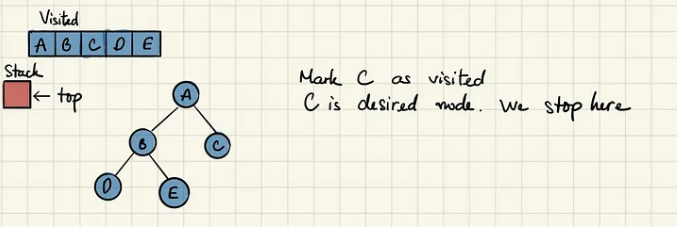 Visited
A B C D E
Stack
← top
A
B
C
D
E
Mark C as visited
C is desired node. We stop here